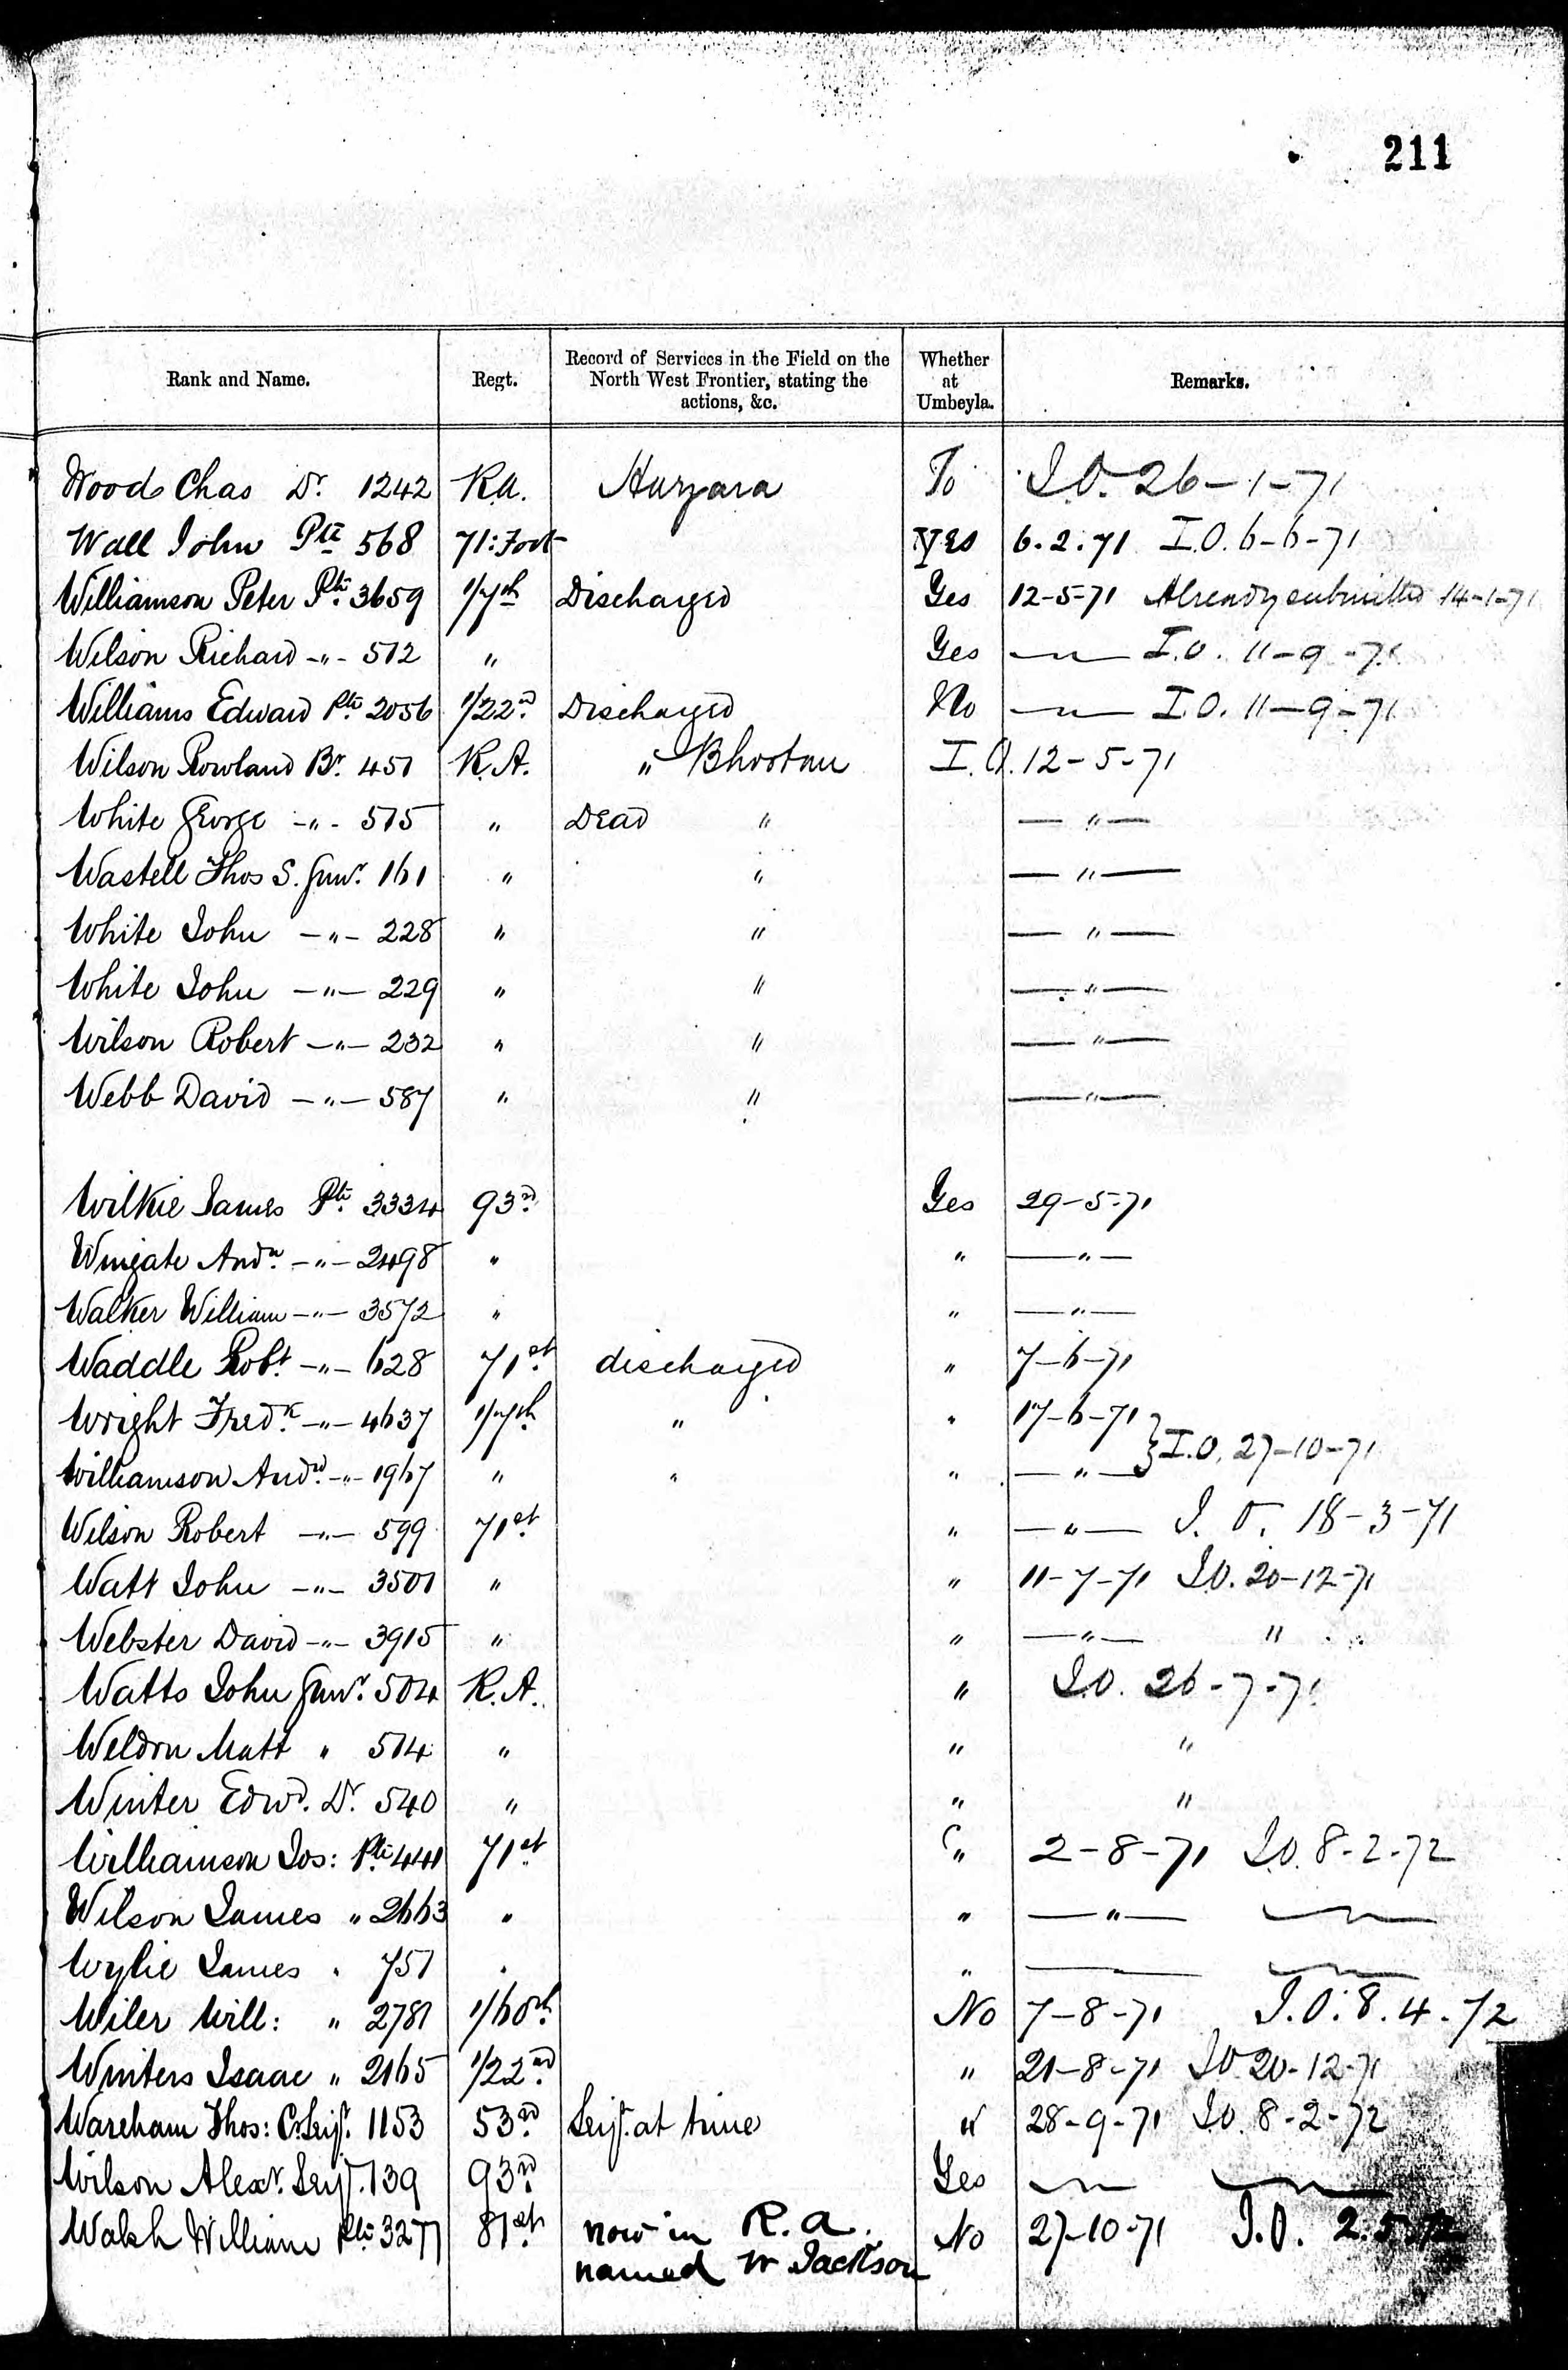 211
Rank and Name. Regt. Record of Services in the Field on the North West Frontier, stating the actions, &c. Whether at Umbeyla. Remarks.
Woods Chas Dr. 1242 R.A. Huzzara To I.O. 26-1-71
Wall John Pte 568 71: Foot Yes 6.2.71 I.O. 6-6-71
Williamson Peter Pte. 3659 1/7th Discharged Yes 12-5-71 Already submitted 14-1-71
Wilson Richard -"- 512 " Yes —"— I.O. 11-9-71
Williams Edward Pte. 2056 1/22nd. Discharged No —"— I.O. 11-9-71
Wilson Rowland Br. 451 R.A. " Bhootan I.O. 12-5-71
White George -"- 515 " Dead " —"—
Wastell Thos S. Gunr. 161 " " —"—
White John -"- 228 " " —"—
White John -"- 229 " " —"—
Wilson Robert -"- 232 " " —"—
Webb David -"- 587 " " —"—
Wilkie James Pte. 3334 93rd. Yes 29-5-71
Wingate Andw. -"- 2498 " " —"—
Walker William -"- 3572 " " —"—
Waddle Robt. -"- 628 71st. discharged " 7-6-71
Wright Fredk. -"- 4637 1/7th. " " 17-6-71 } I.O. 27-10-71
Williamson Andw. -"- 1967 " " " —"— }
Wilson Robert -"- 599 71st " —"— I.O. 18-3-71
Watt John -"- 3501 " " 11-7-71 I.O. 20-12-71
Webster David -"- 3915 " " —"— "
Watts John Gunr. 504 R.A. " I.O. 26-7-71
Weldon Matt " 514 " " "
Winter Edwd. Dr. 540 " " "
Williamson Jos: Pte 441 71st. " 2-8-71 I.O. 8-2-72
Wilson James " 2663 " " —"— —"—
Wylie James " 751 " " —— —"—
Wiler Will: " 2781 1/60th. No 7-8-71 I.O. 8.4.72
Winters Isaac " 2165 1/22nd. " 21-8-71 I.O. 20-12-71
Wareham Thos: C. Serjt. 1153 53rd. Serjt. at time " 28-9-71 I.O. 8-2-72
Wilson Alexr. Serjt. 139 93rd Yes —"— —"—
Walsh William Pte 3277 81st. now in R.A. No 27-10-71 I.O. 2.5.72
named W Jackson